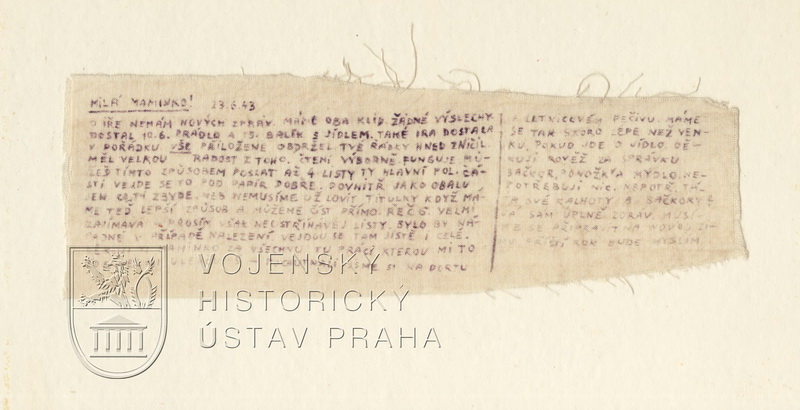 MILÁ MAMINKO! 23.6.43
O IŘE NEMÁM NOVÝCH ZPRÁV. MÁME OBA KLID. ŽÁDNÉ VÝSLECHY
DOSTAL 10.6. PRÁDLO A 15. BALÍK S JÍDLEM. TAKÉ IRA DOSTALA
V POŘÁDKU VŠE PŘILOŽENÉ OBDRŽEL TVÉ ŘÁDKY HNED ZNIČIL.
MĚL VELKOU RADOST Z TOHO. ČTENÍ VÝBORNĚ FUNGUJE MŮ-
ŽEŠ TÍMTO ZPŮSOBEM POSLAT AŽ 4 LISTY TY HLAVNÍ POL. ČÁ-
STI VEJDE SE TO POD PAPÍR DOBŘE. DOVNITŘ JAKO OBALU
JEN CO TI ZBYDE. NEMUSÍME UŽ LOVIT TITULKY KDYŽ MÁ-
ME TEĎ LEPŠÍ ZPŮSOB A MŮŽEME ČÍST PŘÍMO. ŘEČ G. VELMI
ZAJÍMAVÁ PROSÍM VŠAK NEUSTŘIHÁVEJ LISTY. BYLO BY NÁ-
V PŘÍPADĚ NALEZENÍ VEJDOU SE TAM JISTĚ I CELÉ.
ZA VŠECHNU TU PRÁCI KTEROU MI TO
JSME SI NA DORTU
A LETNICOVÉM PEČIVU. MÁME
SE TAK SKORO LÉPE NEŽ VEN-
KU, POKUD JDE O JÍDLO. DĚ-
KUJI ROVĚŽ ZA SPRÁVKU
BAČKOR, PONOŽKY A MÝDLO. NE-
POTŘEBUJI NIC.
KALHOTY A BAČKORY Z
SÁM ÚPLNĚ ZDRÁV. MUSÍ-
ME SE PŘIPRAVIT NA NOVOU ZI-
MU PŘÍŠTÍ ROK BUDE MYSLÍM
VOJENSKÝ
HISTORICKÝ
ÚSTAV PRAHA